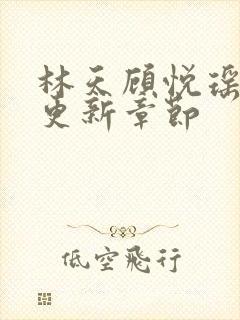 林天顾悦瑶
更新章节
低空飛行